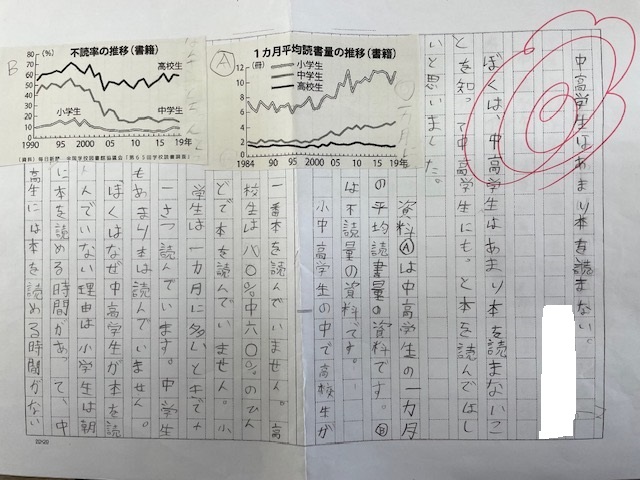 中高学生はあまり本を読まない。
ぼくは、中高学生はあまり本を読まないこ
とを知って中高学生にもっと本を読んでほし
いと思いました。
資料Ⓐは中高学生の一カ月
の平均読書量の資料です。Ⓑ
は不読量の資料です。
小中高学生の中で高校生が
一番本を読んでいません。高
校生は八〇%中六〇%のひん
どで本を読んでいません。小
学生は一カ月に多いときで十
一さつ読んでいます。中学生
もあまり本は読んでいません。
ぼくはなぜ中高学生が本を読
んでいない理由は小学生は朝
に本を読める時間があって、中
高生には本を読める時間がない
Ⓐ
1カ月平均読書量の推移(書籍)
(冊)
小学生
中学生
高校生
12
10
8
6
4
2
0
1984 90 95 2000 05 10 15 19年
B
不読率の推移(書籍)
(%)
80
70
60
50
40
30
20
10
0
高校生
小学生
中学生
1990 95 2000 05 10 15 19年
(資料)毎日新聞 全国学校図書館協議会「第65回学校読書調査」
20×20